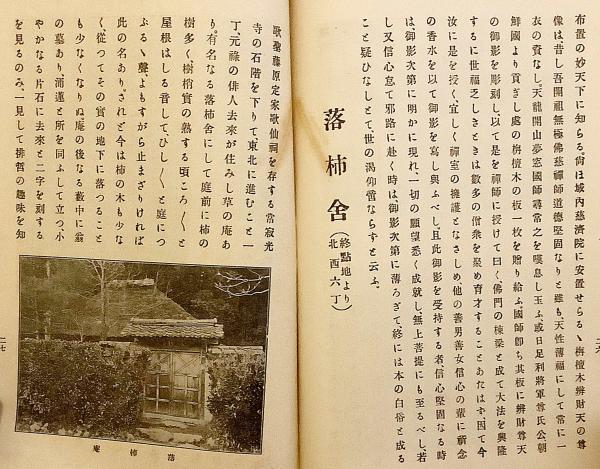 布置の妙天下に知らる。尙ほ城内慈濟院に安置せらるゝ栴檀木辨財天の尊
像は昔し吾開祖無極佛慈禪師道德堅固なりと雖も、天性薄福にして常に一
衣の資なし、天龍開山夢窓國師尋常之を嘆息し玉ふ、或日足利將軍尊氏公朝
鮮國より貢ぎし處の栴檀木の板一枚を贈り給ふ、國師卽ち其板に辨財天
の御影を彫刻し、以て是を禪師に授けて曰く、佛門の棟梁と成て大法を興隆
するに世福乏しきときは數多の僧衆を聚め育才することあたはす、因て今
汝に是を授く、宜しく禪室の擁護となさしめ他の善男善女信心の輩に祈念
の香水を以て御影を寫し與ふべし、且此御影を受持する者信心堅固なる時
は御影次第に明かに現れ、一切の願望悉く成就し、無上菩提にも至るべし、若
し又信心怠て邪路に赴く時は、御影次第に薄ろぎて、終には本の白俗と成る
こと疑ひなしとて、世の渴仰啻ならすと云ふ。
落柿舍（終點地より北西六丁）
歌聖藤原定家歌仙祠を存する常寂光
寺の石階を下りて、東北に進むこと一
丁、元祿の俳人去來が住みし草の庵あ
り、有名なる落柿舍にして庭前に柿の
樹多く樹梢實の熟する頃ころ〱と
屋根はしる音してひし〱と庭につ
ぶるゝ聲、よもすがら止まざりければ
此の名あり、されど今は柿の木も少な
く、從つてその實の地下に落つること
も少なくなりぬ庵の後なる藪中に翁
の墓あり、洒蓮と所を同ふして立つ、小
やかなる片石に去來と二字を刻する
を見るのみ、一見して俳哲の趣味を知
落柿庵
二七